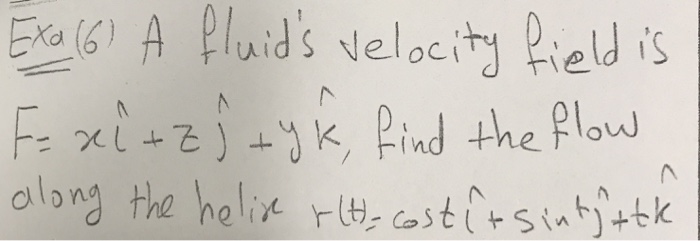 Exa(6) A fluid's velocity field is
F = xî + zĵ + yk̂, find the flow
along the helix r(t) = costî + sintĵ + tk̂